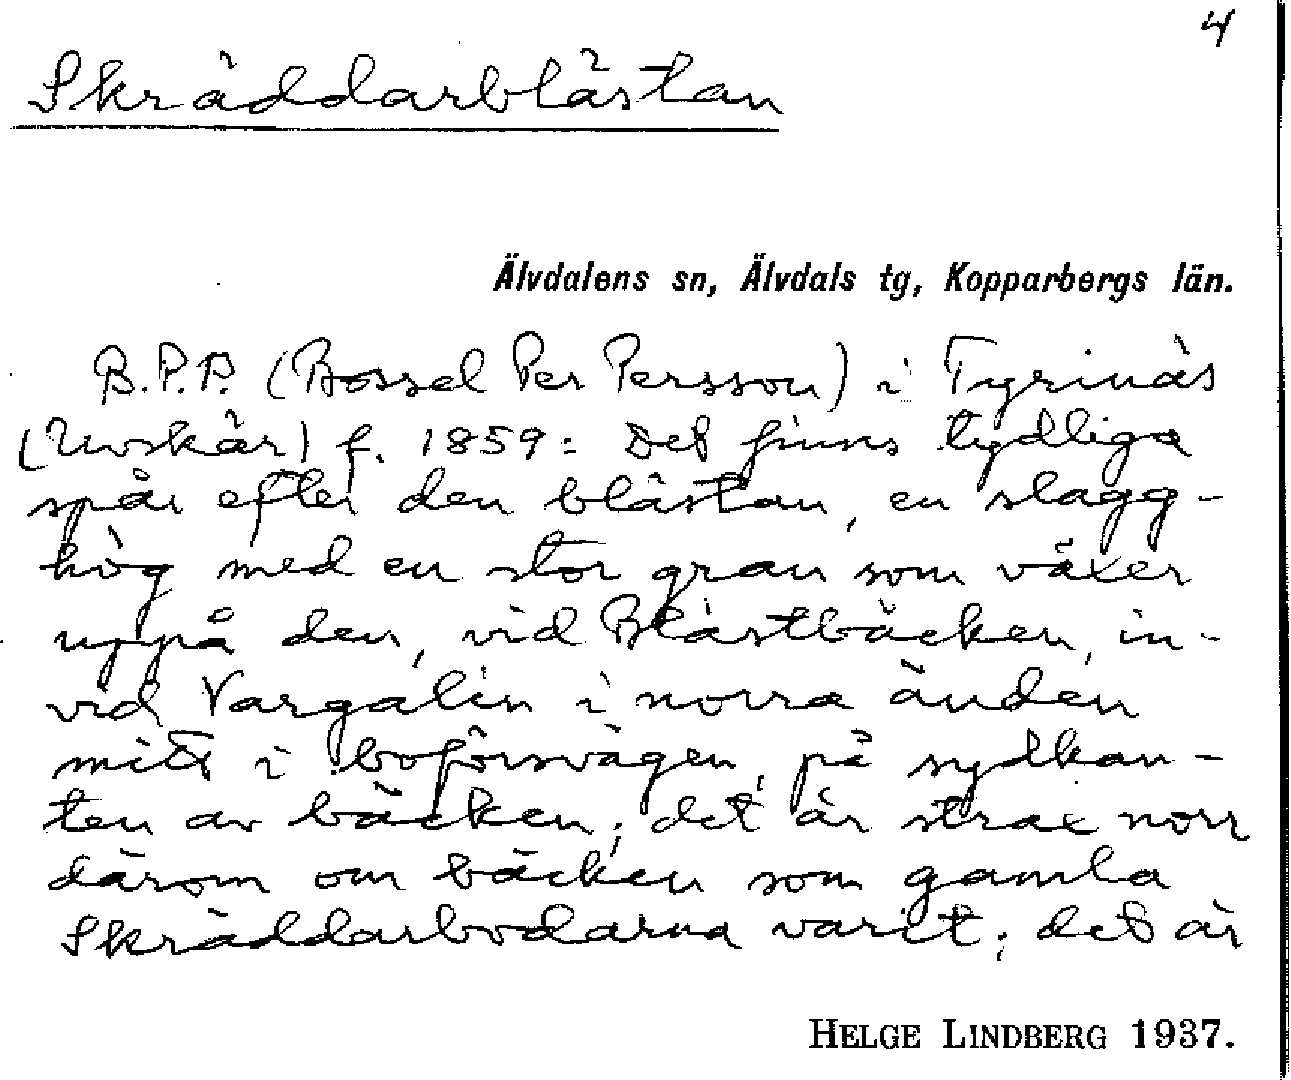 4
Skräddarblästan
Älvdalens sn, Älvdals tg, Kopparbergs län.
B.P.P. (Bossel Per Persson) i Tyrinäs
f. 1859: Det finns tydliga
spår efter den blästan, en slagg-
hög med en stor gran som växer
uppå den, vid Blästbäcken, in-
vid Vargalin i norra änden
mitt i boförsvägen, på sydkan-
ten av bäcken; det är strax norr
därom om bäcken som gamla
Skräddarbodarna varit; det är
HELGE LINDBERG 1937.